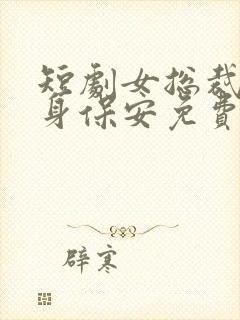 短劇女总裁
身保安免費
辟寒